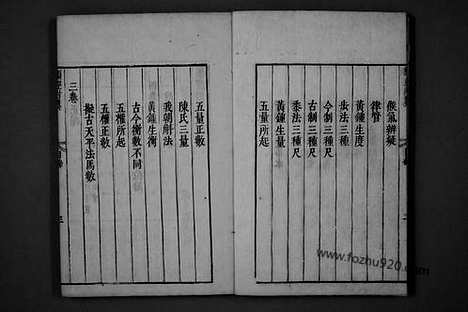 候氣辨疑
律曆
黃鍾生度
虫法三種
今制三種尺
古制三種尺
黍法三種尺
黃鍾生量
五量所起
五量正數
陳氏三量
我朝斛法
黃鍾生衡
古今衡數不同
五權所起
五權正數
擬古天平法馬數
三卷
三
www.fozhu920.com